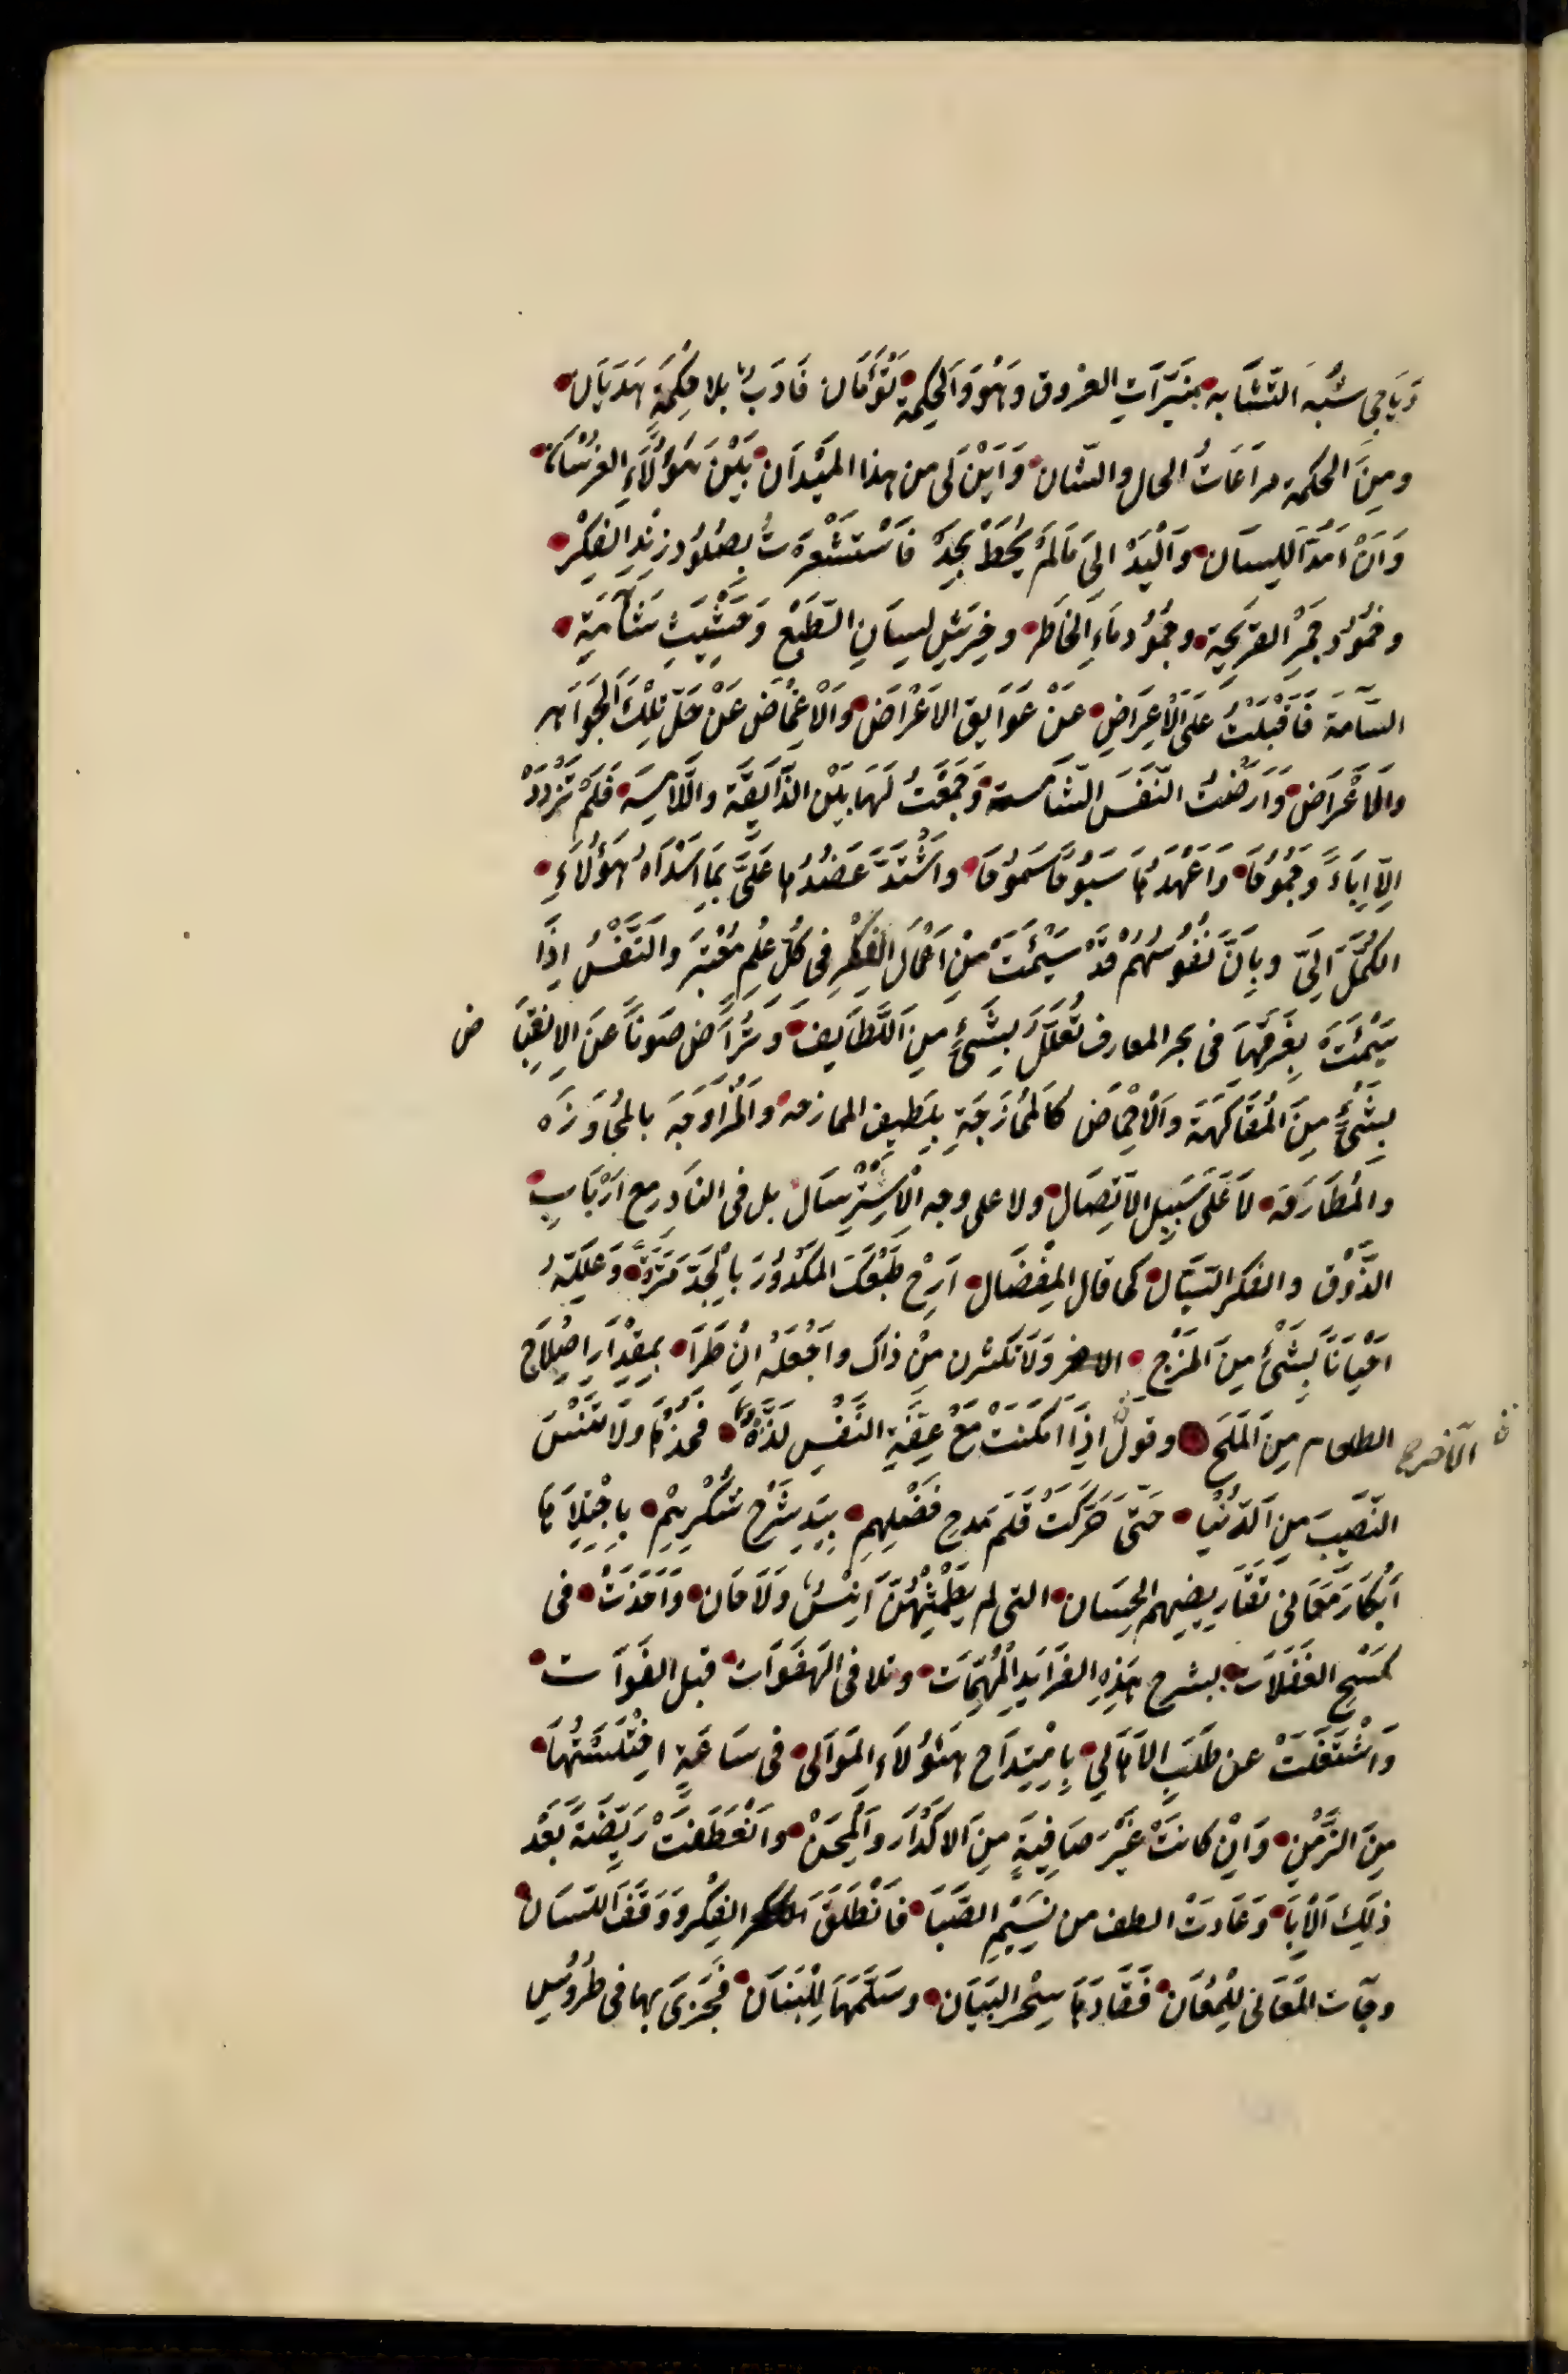 دَيَاجِي شُبَهِ التَّشَابُهِ بِنَيِّرَاتِ الفُرُوقِ وَهُوَ وَالْحِكْمَةُ تَوْءَمَانِ فَادَبٌ بلا حِكْمَةٍ هَذَيَانٌ
ومِنَ الحكمةِ مراعَاتُ الحال والشان وَاَيْنَ لى من هذا المَيْدَانِ بَيْنَ هَؤُلَاءِ الفُرْسَانِ
وَاَنْ اَمُدَّ اللِّسَانَ وَالْيَدَ اِلىَ مَالَمْ يُحَطْ بِحِدِّهِ فَاسْتَشْعَرَتْ بِصُلُودِ زَنْدِ الفِكْرِ
وخُمُودِ جَمْرِ القَرِيحَةِ وجُمُودِ مَاءِ الخَاطِرِ ولِسَانِ الطَّبْعِ
السآمَة فَاَقْبَلَتْ عَلَى الْاِعْرَاضِ عَنْ عَوَايِقِ الاَعْرَاضِ وَالْاِغْمَاضِ عَنْ تِلْكَ الجَوَاهِرِ
وَالْاَعْرَاضِ وَارَضْتُ النَّفْسَ الشَّامسة وَجَمَعْتُ لَهَا بَيْنَ الذَّايِقَةِ وَاللَّامِسَةِ فَلَمْ تَزْدَدْ
اِلَّا اِبَاءً وَجُمُوحًا وَاَعْهَدُهَا سَبُوقًا سَمُوحًا وَاشْتَدَّ عَضُدُهَا عَلَيَّ بِمَا اَسْدَاهُ هَؤُلَاءِ
الكُمَّلُ اِلَيَّ وبِاَنَّ نُفُوسَهُمْ قَدْ سَئِمَتْ مِنْ اَعْمَالِ الفِكْرِ فى كُلِّ عِلْمٍ مُعْتَبَرٍ والنَّفْسُ اِذَا
سَئِمَتْ بِغَرَقِهَا فى بحر المعارف تُعَلَّلُ بِشَىْءٍ مِنَ اللَّطَايِفِ وَتُرَاضُ صَوْنًا عَنِ الاِنْقِبَاض
بِشَىْءٍ مِنَ المُفَاكَهَةِ وَالْاِحْمَاضِ كَالمُمَازَجَةِ بِلَطِيفِ الممازحه وَالْمُزَاوَجَةِ بالمُحَاوَرَه
والمُطَارَحَةِ لَا عَلَى سَبِيلِ الاِتِّصَالِ ولا على وجه الاِسْتِرْسَالِ بل فى النَادِرِ مع اَرْبَابِ
الذَّوْقِ والفكر السَيَّالِ كما قال المِفْضَالُ اَرِحْ طَبْعَكَ المَكْدُودَ بِالجِدِّ مَرَّةً وَعَلِّلْهُ
اَحْيَانًا بِشَىْءٍ مِنَ المَزْحِ وَلَا تَكْثُرَنْ مِنْ ذاك واجْعَلْهُ اِنْ طَرَا بِمِقْدَارِ اِصْلَاحِ
الطعام مِنَ المِلْحِ وقول الآخر اِذَا اَمْكَنَتْ مَعْ عِفَّةِ النَّفْسِ لَذَّةٌ فَخُذْهَا ولَا تَنْسَ
النَّصِيبَ مِنَ الدُّنْيَا حَتَّى حَرَّكَتْ قَلَمَ مَدحِ فَضْلِهِمِ بِيَدِ شَرْحِ شُكْرِهِمْ بِاجْتِلَاءِ
اَبْكَارِ مَعَانى تَقَارِيضِهِم الحِسَانِ التى لم يَطْمِثْهُنَّ اِنْسٌ وَلَا جَانٌ وَاَخَذَتْ فى
مَسْحِ الغَفَلَاتِ بشرح هَذِهِ الفَرَايدِ المُهِمَّاتِ وتلافى الهَفَوَاتِ قبل الفَوَات
وَاشْتَغَلَتْ عن طَلَبِ الاَمَالِي بِامْتِدَاحِ هَؤُلَاءِ المَوَالى فى سَاعَةٍ اخْتَلَسْتُهَا
مِنَ الزَّمَنِ وَاِنْ كانَتْ غَيْرَ صَافِيَةٍ مِنَ الاَكْدَارِ وَالْمِحَنْ وانْعَطَفَتْ رَيِّضَةً بَعْدَ
ذلِكَ الْاِبَا وَعَادَتْ الطف من نَسِيْمِ الصَّبَا فَانْطَلَقَ الفِكْرُ وَوَقَفَ اللسَان
وجآت المَعَانى فَقَادَهَا سِحْرُ البَيَانِ وسَلَّمَهَا لِلْبَنَانِ فَجَرَى بها فى طُرُوسِ